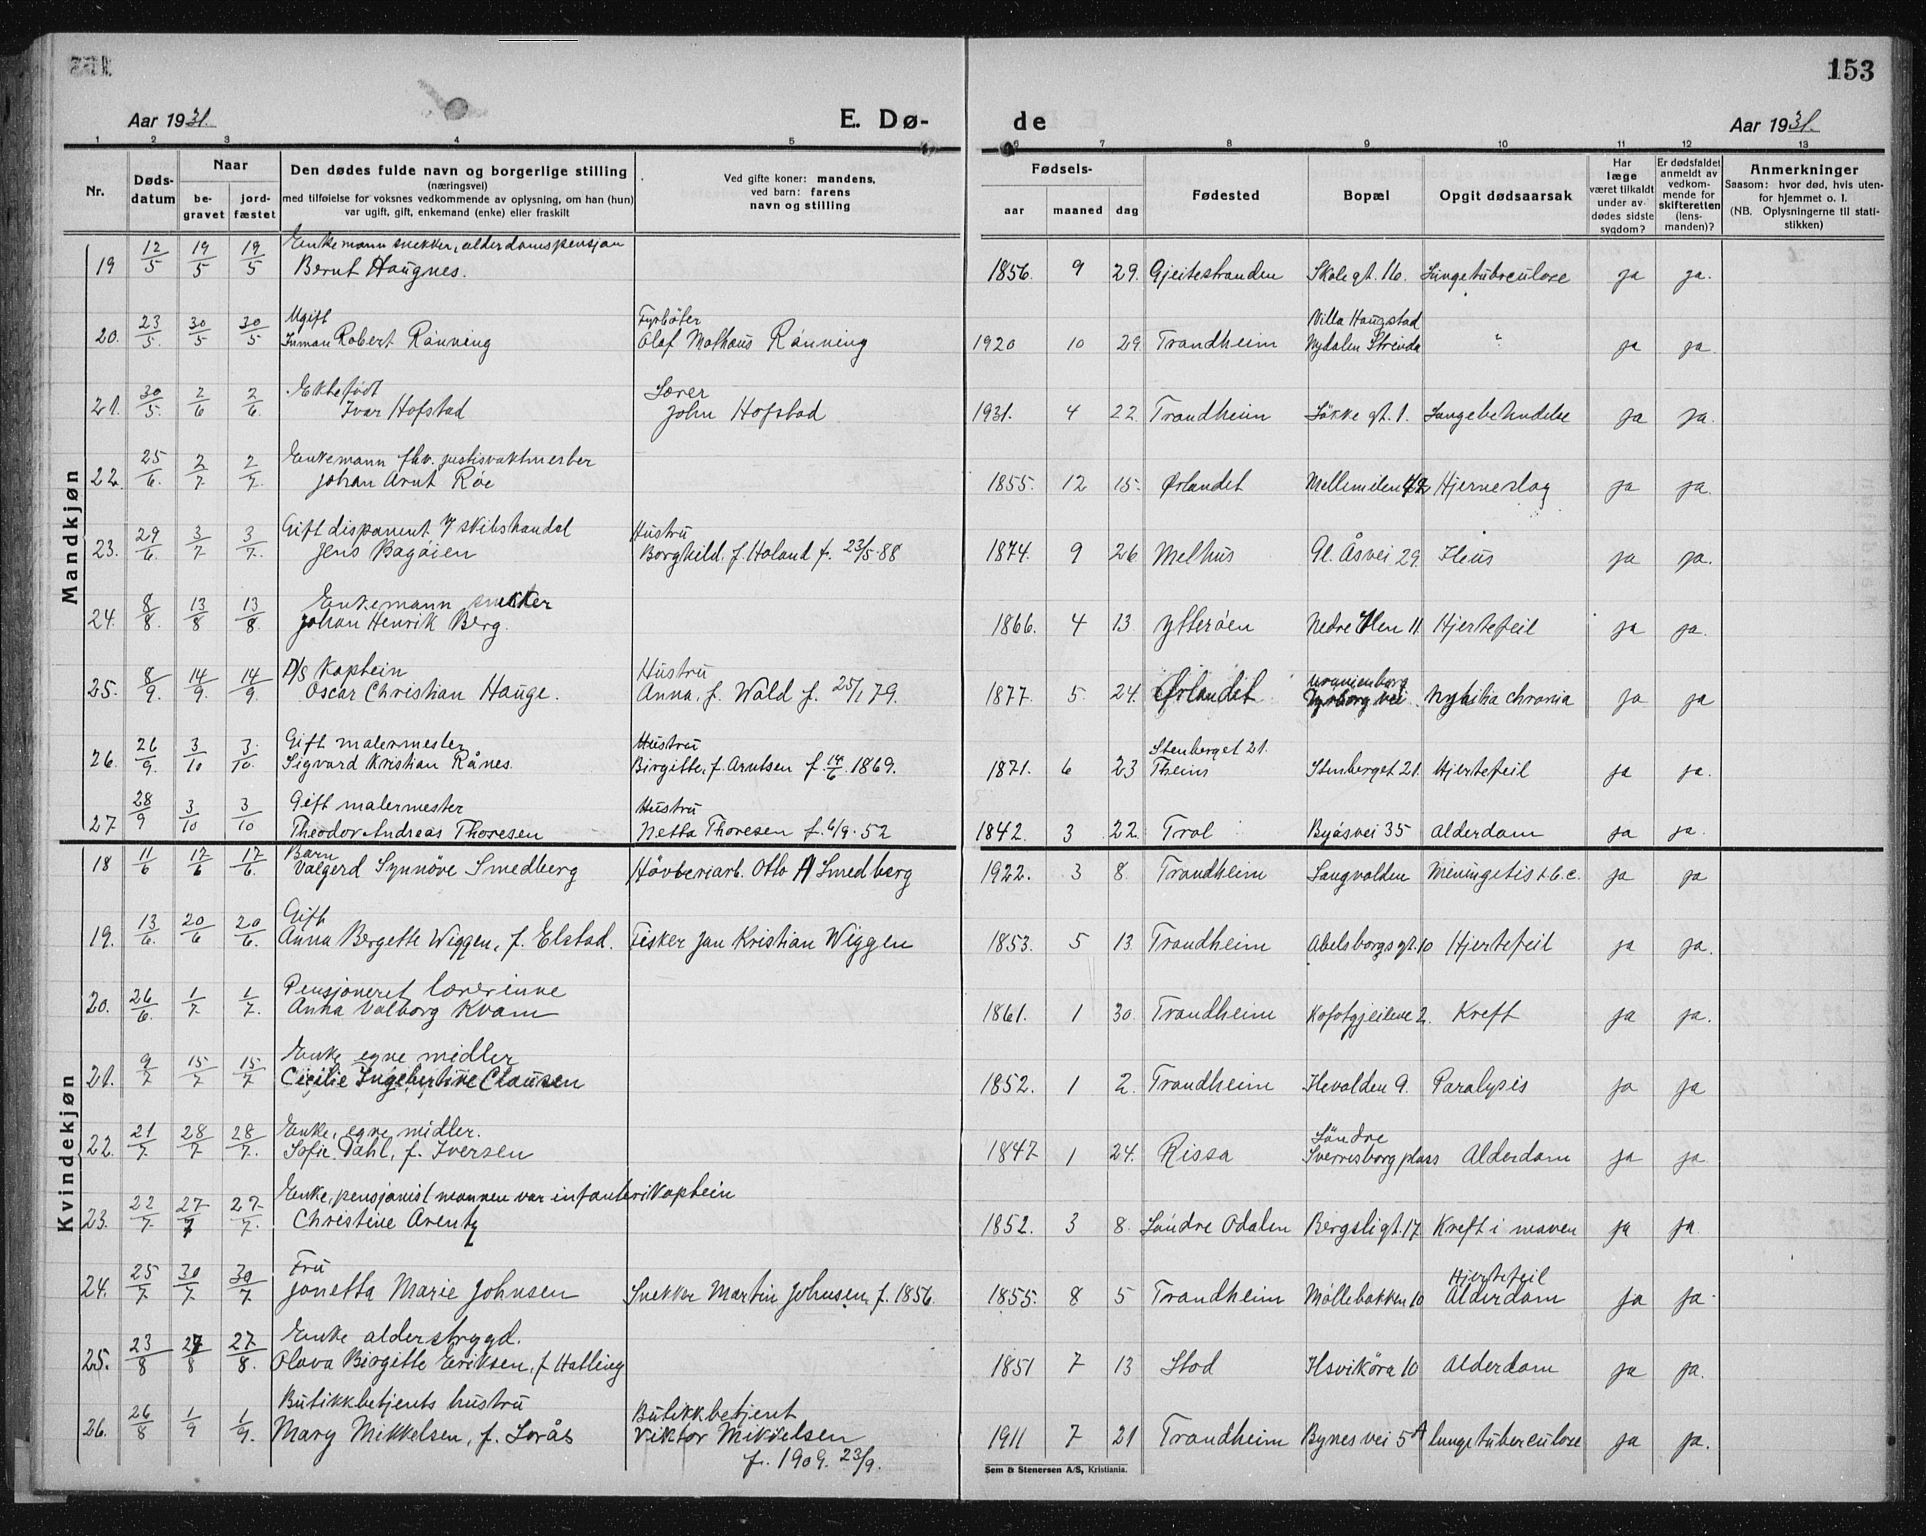 153
Aar 1931.
E. Dø-
de
Aar 1931.
1 2 3 4 5 6 7 8 9 10 11 12 13
Nr.
Døds-
datum
Naar
be-
gravet
jord-
fæstet
Den dødes fulde navn og borgerlige stilling
(næringsvei)
med tilføielse for voksnes vedkommende av oplysning, om han (hun)
var ugift, gift, enkemand (enke) eller fraskilt
Ved gifte koner: mandens,
ved barn: farens
navn og stilling
Fødsels-
aar maaned dag
Fødested
Bopæl
Opgit dødsaarsak
Har
læge
været tilkaldt
under av-
dødes sidste
sygdom?
Er dødsfaldet
anmeldt av
vedkom-
mende for
skifteretten
(lens-
manden)?
Anmerkninger
Saasom: hvor død, hvis uten-
for hjemmet o. l.
(NB. Oplysningerne til stati-
stikken)
Mandkjøn
Enkemann snekker, alderdomspensjon
19 12/5 19/5 19/5 Bernt Haugnes. 1856. 9 29. Gjeitestranden Skole gt. 16. Lungetuberculose ja ja.
Ugift Fyrbøter Villa Haugstad
20. 23/5. 30/5 30/5 Inman Robert Rønning Olaf Mathæus Rønning 1920 10 29. Trondheim Nydalen Strinda " ja ja.
Ektefødt Lærer
21. 30/5. 2/6 2/6 Ivar Hofstad John Hofstad 1931. 4 22. Trondheim Løkke gt. 1. Lungebetendelse ja ja.
Enkemann fhv. justisvaktmester
22. 25/6. 2/7 2/7. Johan Arnt Röe 1855. 12 15. Ørlandet Mellemilen 42 Hjerneslag ja ja.
Gift disponent i/ skibshandel Hustru
23. 29/6. 3/7 3/7. Jens Bagøien Borghild. f. Holand f. 23/5-88 1874. 9 26 Melhus Gl. Åsvei 29. Ileus ja ja.
Enkemann snekker
24. 8/8. 13/8 13/8. Johan Henrik Berg. 1866. 4 13. Ytterøen Nedre Ilen 11 Hjertefeil ja ja.
D/S Kaptein Hustru Uranienborg
25. 8/9. 14/9. 14/9 Oscar Christian Hauge. Anna, f. Wald f. 25/1 79. 1877. 5 24. Ørlandet ja ja
Gift malermester Hustru Stenberget 21.
26. 26/9. 3/10 3/10. Sigvard Kristian Rånes. Birgitte, f. Arntsen f. 14/6 1869. 1871. 6 23 Theim Stenberget 21. Hjertefeil ja ja.
Gift malermester Hustru
27 28/9 3/10 3/10 Theodor Andreas Thoresen Netta Thoresen f. 6/9. 52 1842. 3 22. Byåsvei 35 Alderdom ja ja.
Kvindekjøn
Barn
18 11/6 17/6 17/6. Valgerd Synnøve Smedberg Høvleriarb. Otto A Smedberg 1922. 3 8. Trondheim Sangvolden Meningitis t.b.c. ja ja
Gift
19. 13/6. 20/6 20/6. Anna Bergette Wiggen, f. Elstad. Fisker Jan Kristian Wiggen 1853. 5 13. Trondheim Abelsborgs gt. 10 Hjertefeil ja ja.
Pensjoneret lærerinne
20. 26/6. 1/7 1/7. Anna Valborg Kvam 1861. 1 30. Trondheim Kofotgjeilene 2. Kreft ja ja.
Enke egne midler
21. 9/7 15/7 15/7 Cicilie Ingebertine Clausen 1852. 1 2. Trondheim Ilevolden 9. Paralysis ja ja
Enke, egne midler. Söndre
22. 21/7. 28/7 28/7. Sofie Dahl, f. Iversen 1847 1 24. Rissa Sverresborg plass Alderdom ja ja
Enke, pensjonist mannen var infanterikaptein
23. 22/7. 27/7 27/7. Christine Arentz 1852. 3 8. Söndre Odalen Bergsligt. 17. Kreft i maven ja ja.
Fru Hjertefeil
24. 25/7. 30/7 30/7 Jonetta Marie Johnsen Snekker Martin Johnsen, f. 1856. 1855. 8 5 Trondheim Möllebakken 10 Alderdom ja ja.
Enke alderstrygd.
25. 23/8 27/8 27/8. Olava Birgitte Eriksen, f. Halling 1851 7 13 Stod Ilsvikøra 10 Alderdom ja ja.
Butikkbetjents hustru Butikkbetjent
26. 26/8 1/9 1/9. Mary Mikkelsen, f. Sorås Viktor Mikkelsen 1911 7 21 Trondheim Bynesvei 5 A lungetuberculose ja ja.
f. 1909. 23/9.
Sem & Stenersen A/S, Kristiania.